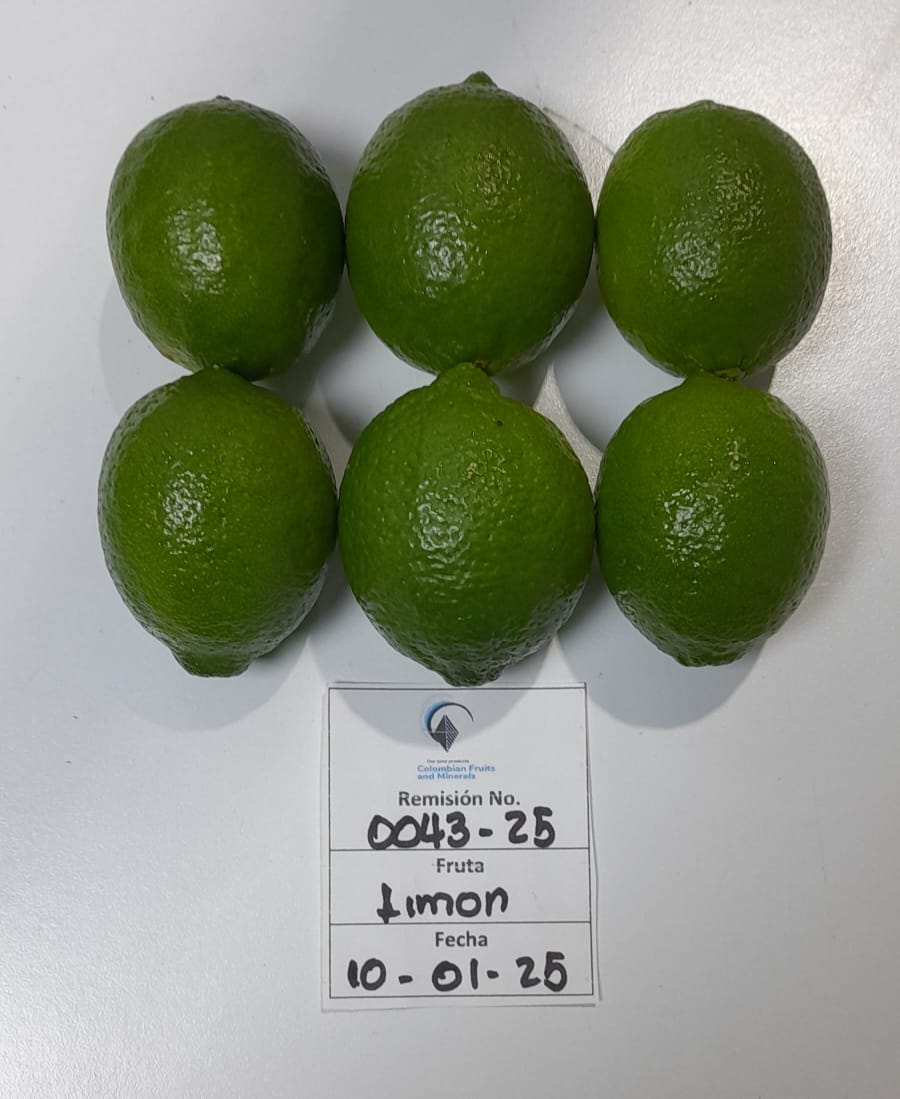 Our best products
Colombian Fruits
and Minerals
Remisión No.
0043-25
Fruta
Limon
Fecha
10-01-25